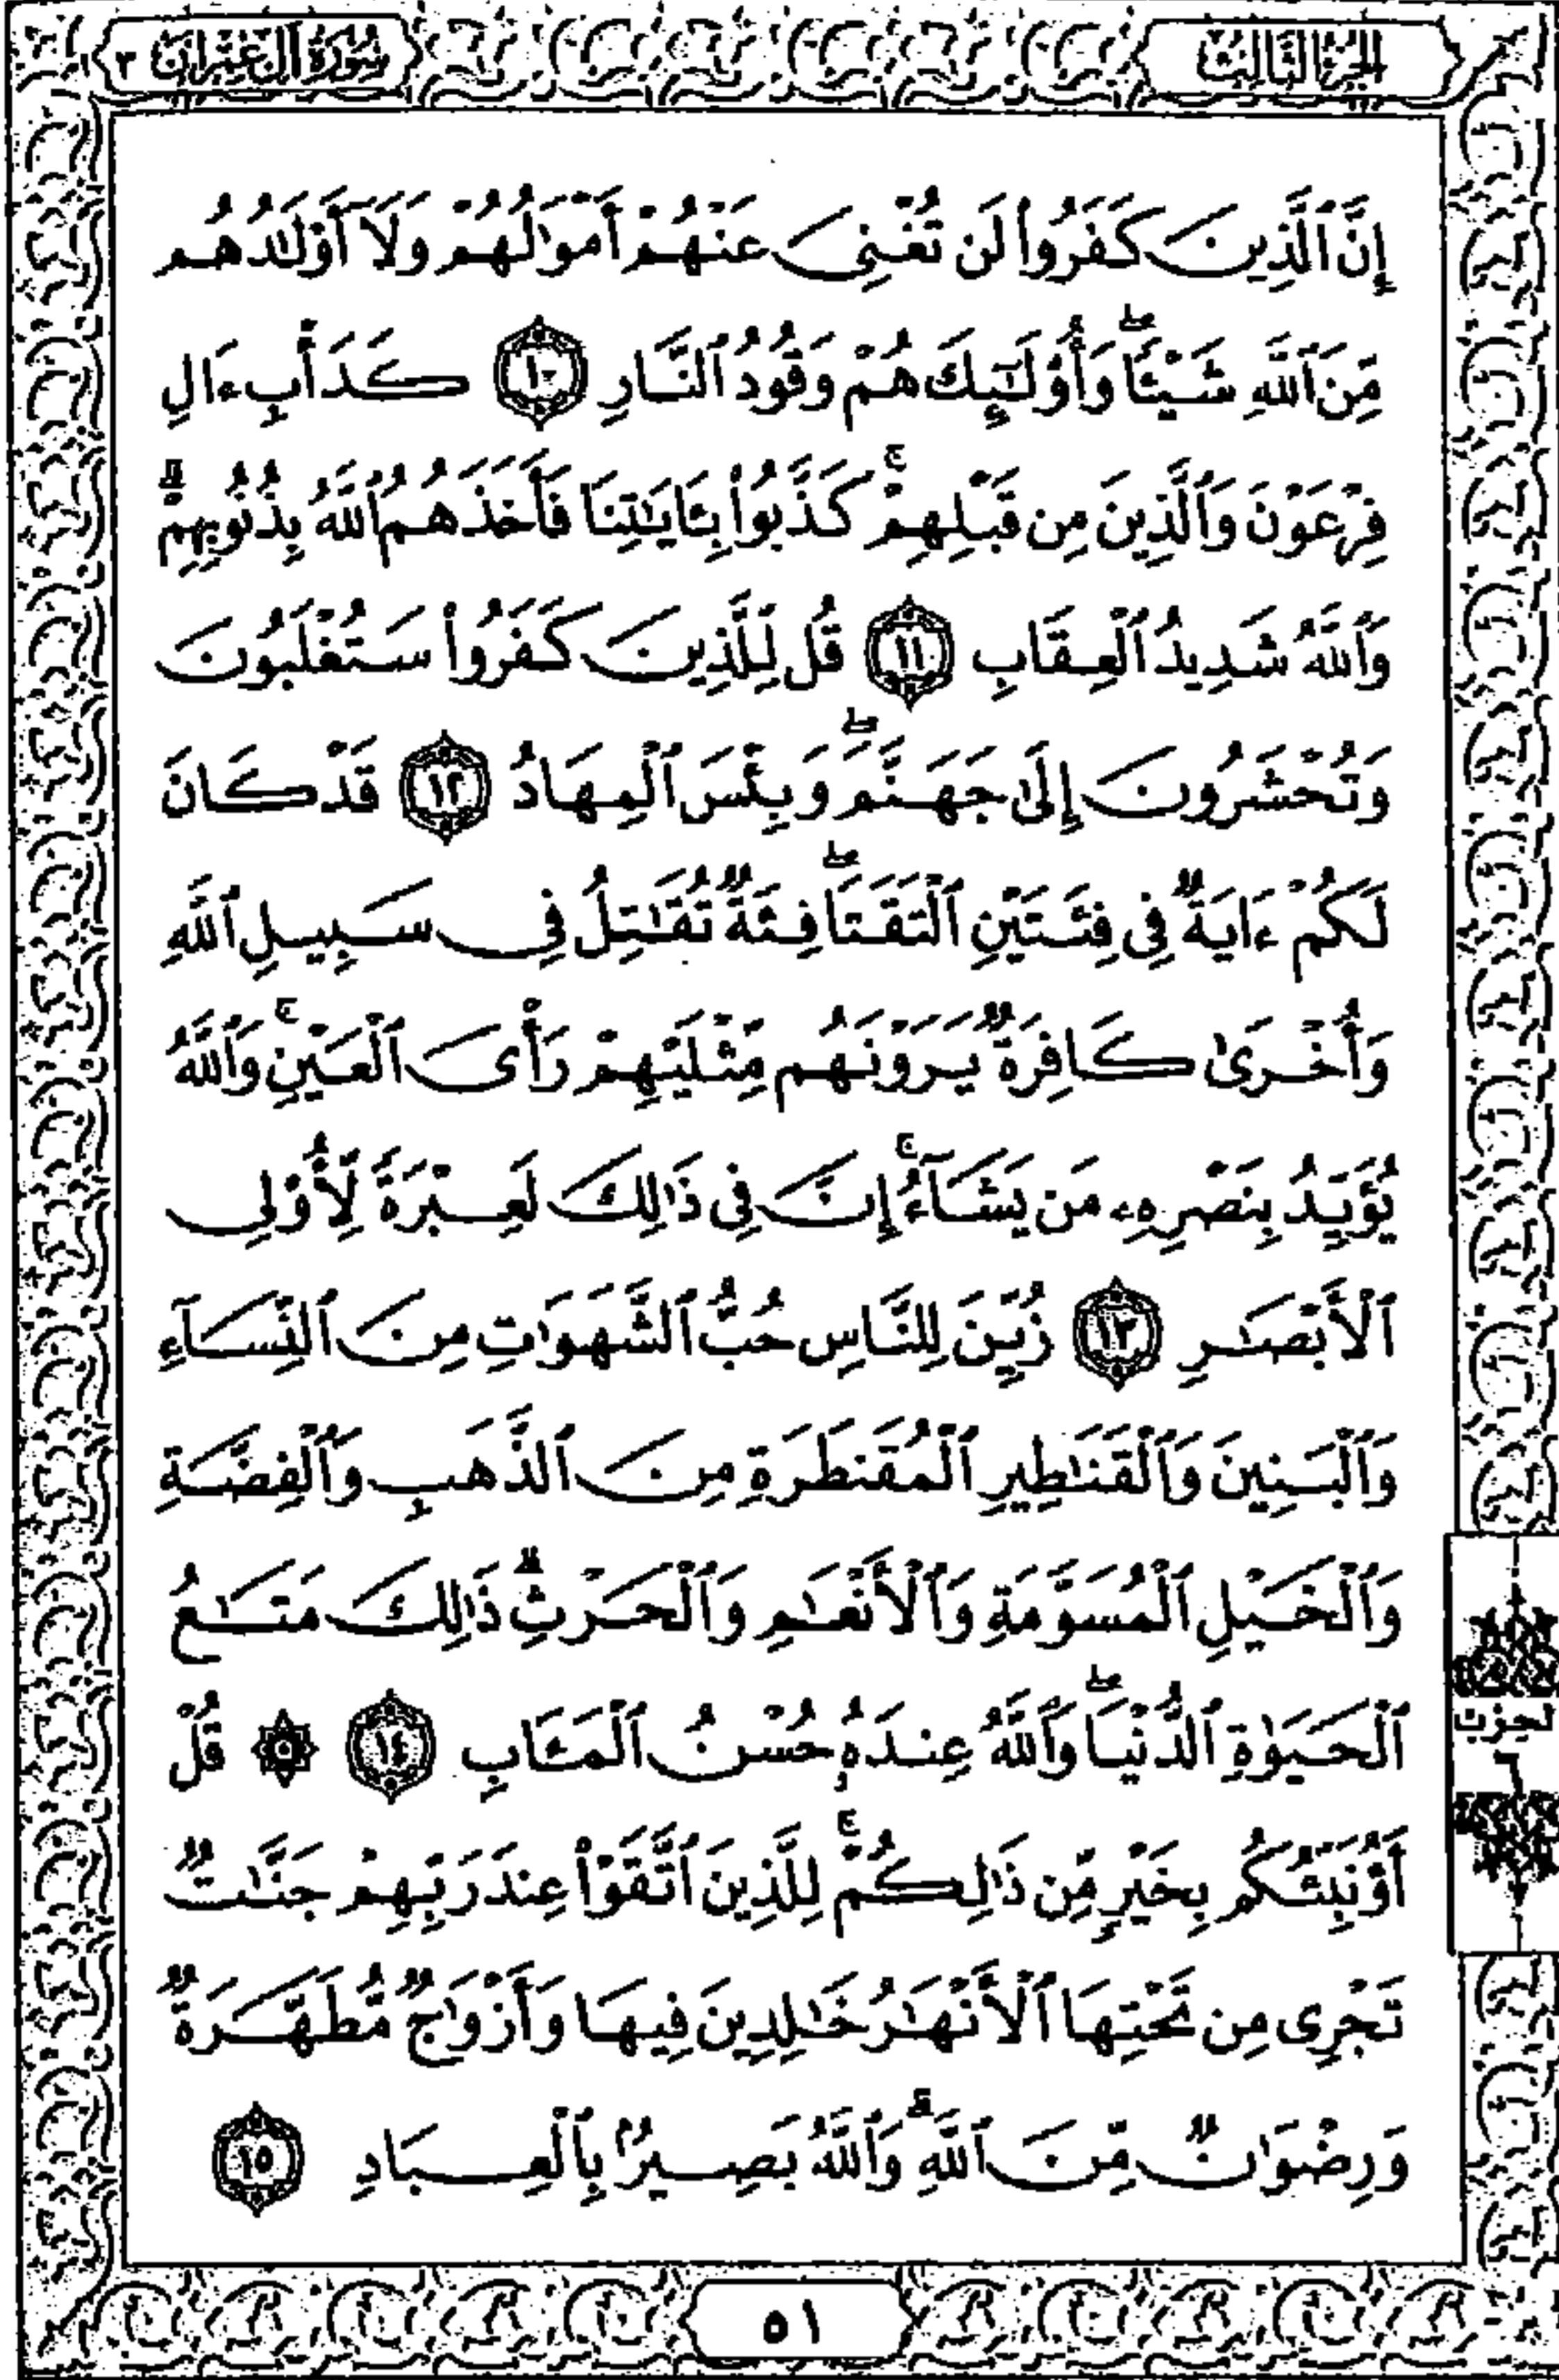 الجزء الثالث
سورة آل عمران ٣
إِنَّ ٱلَّذِينَ كَفَرُوا۟ لَن تُغْنِىَ عَنْهُمْ أَمْوَٰلُهُمْ وَلَآ أَوْلَٰدُهُم
مِّنَ ٱللَّهِ شَيْـًٔا ۖ وَأُو۟لَٰٓئِكَ هُمْ وَقُودُ ٱلنَّارِ ١٠ كَدَأْبِ ءَالِ
فِرْعَوْنَ وَٱلَّذِينَ مِن قَبْلِهِمْ ۚ كَذَّبُوا۟ بِـَٔايَٰتِنَا فَأَخَذَهُمُ ٱللَّهُ بِذُنُوبِهِمْ ۗ
وَٱللَّهُ شَدِيدُ ٱلْعِقَابِ ١١ قُل لِّلَّذِينَ كَفَرُوا۟ سَتُغْلَبُونَ
وَتُحْشَرُونَ إِلَىٰ جَهَنَّمَ ۖ وَبِئْسَ ٱلْمِهَادُ ١٢ قَدْ كَانَ
لَكُمْ ءَايَةٌ فِى فِئَتَيْنِ ٱلْتَقَتَا ۖ فِئَةٌ تُقَٰتِلُ فِى سَبِيلِ ٱللَّهِ
وَأُخْرَىٰ كَافِرَةٌ يَرَوْنَهُم مِّثْلَيْهِمْ رَأْىَ ٱلْعَيْنِ ۚ وَٱللَّهُ
يُؤَيِّدُ بِنَصْرِهِۦ مَن يَشَآءُ ۚ إِنَّ فِى ذَٰلِكَ لَعِبْرَةً لِّأُو۟لِى
ٱلْأَبْصَٰرِ ١٣ زُيِّنَ لِلنَّاسِ حُبُّ ٱلشَّهَوَٰتِ مِنَ ٱلنِّسَآءِ
وَٱلْبَنِينَ وَٱلْقَنَٰطِيرِ ٱلْمُقَنطَرَةِ مِنَ ٱلذَّهَبِ وَٱلْفِضَّةِ
وَٱلْخَيْلِ ٱلْمُسَوَّمَةِ وَٱلْأَنْعَٰمِ وَٱلْحَرْثِ ۗ ذَٰلِكَ مَتَٰعُ
ٱلْحَيَوٰةِ ٱلدُّنْيَا ۖ وَٱللَّهُ عِندَهُۥ حُسْنُ ٱلْمَـَٔابِ ١٤ ۞ قُلْ
أَؤُنَبِّئُكُم بِخَيْرٍ مِّن ذَٰلِكُمْ ۚ لِلَّذِينَ ٱتَّقَوْا۟ عِندَ رَبِّهِمْ جَنَّٰتٌ
تَجْرِى مِن تَحْتِهَا ٱلْأَنْهَٰرُ خَٰلِدِينَ فِيهَا وَأَزْوَٰجٌ مُّطَهَّرَةٌ
وَرِضْوَٰنٌ مِّنَ ٱللَّهِ ۗ وَٱللَّهُ بَصِيرٌۢ بِٱلْعِبَادِ ١٥
٥١